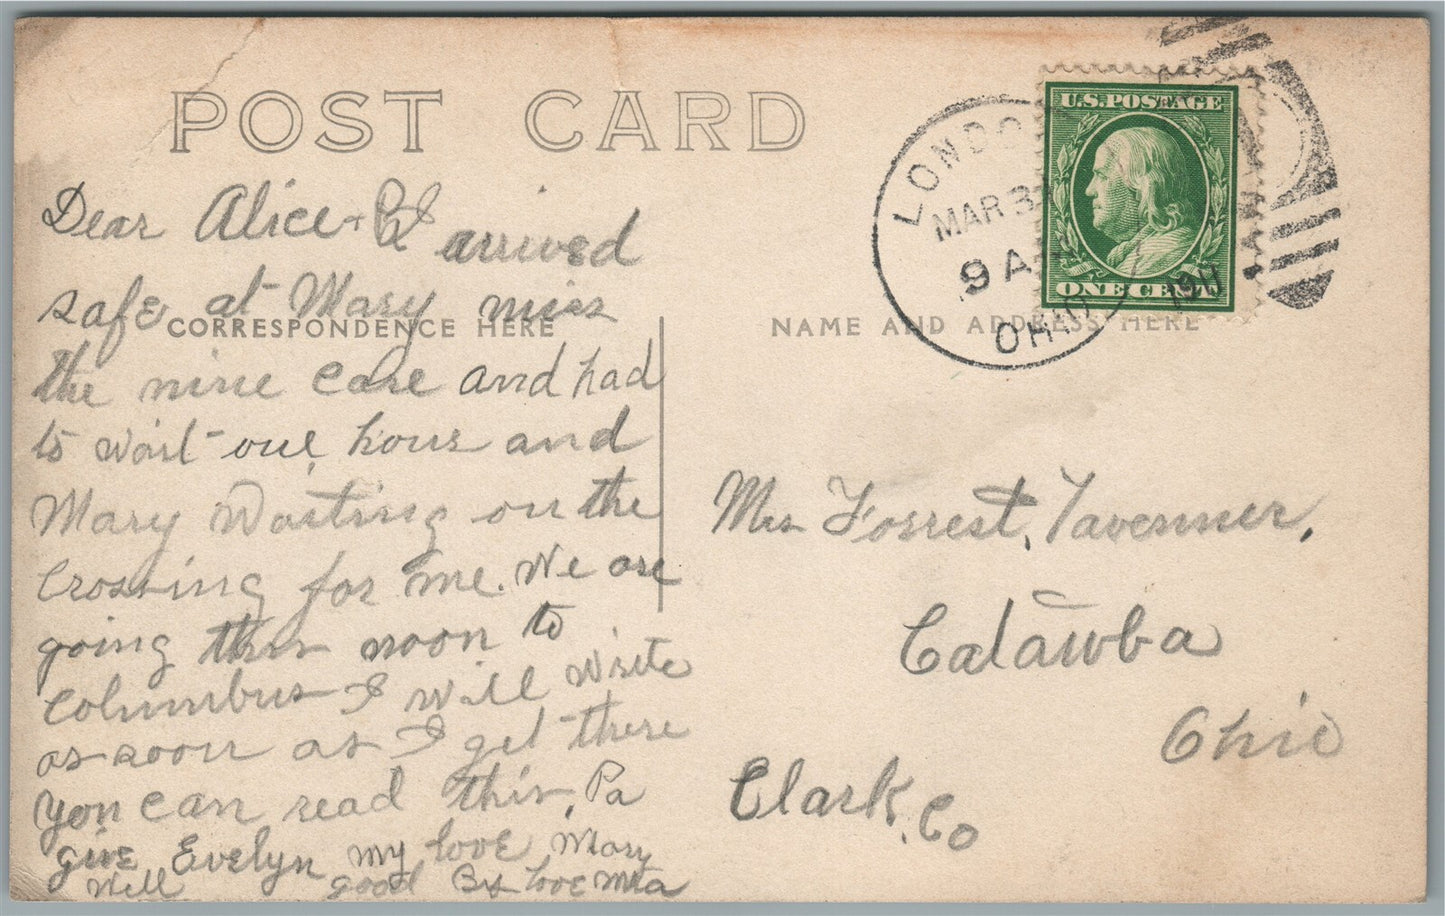 POST CARD
Dear Alice + I arrived
safe at Mary miss
CORRESPONDENCE HERE
the nine care and had
to wait one hour and
Mary Waiting on the
Crossing for me. We are
going this noon to
Columbus I will write
as soon as I get there
you can read this, Pa
give Evelyn my love Mary
Well good By love
U.S. POSTAGE
ONE CENT
LONDON
MAR 3
9 A
OHIO
1911
NAME AND ADDRESS HERE
Mrs Forrest, Tavenner,
Catawba
Ohio
Clark, Co